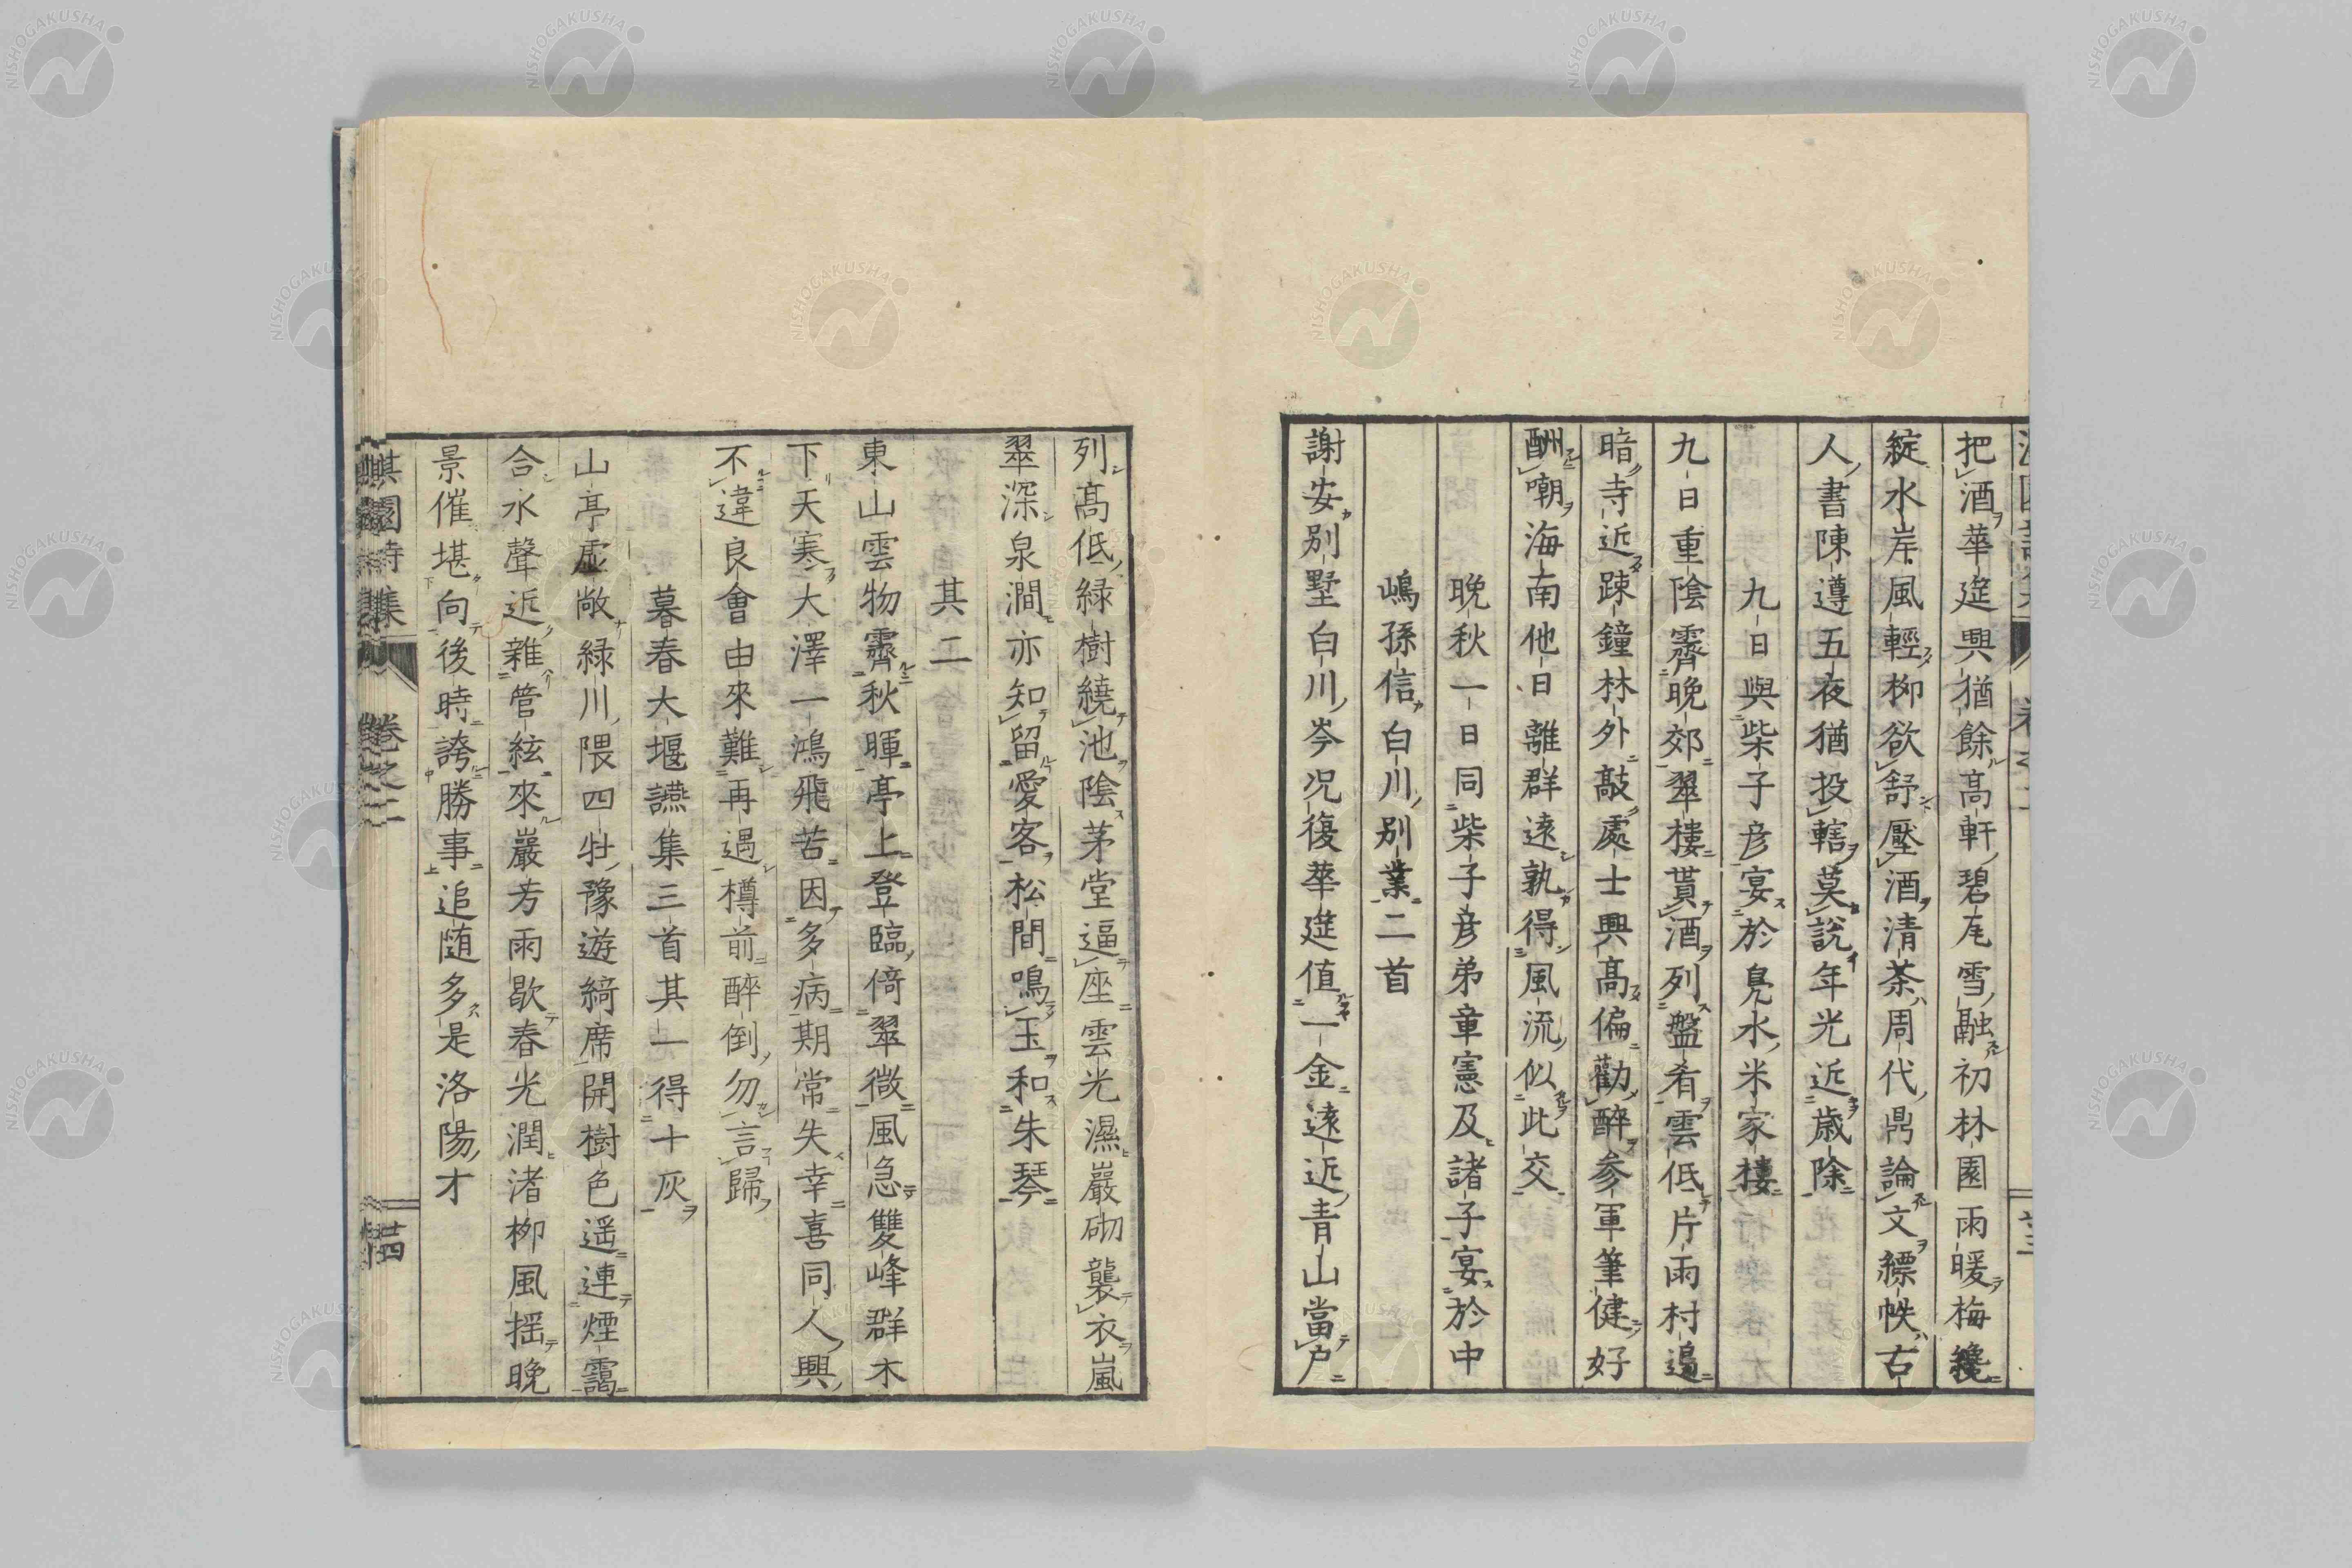 把酒華筵興猶餘高軒碧瓦雪融初林園雨暖梅纔
綻水岸風輕柳欲舒壓酒清茶周代鼎論文縹帙古
人書陳遵五夜猶投轄莫說年光近歲除
九日與柴子彥宴於鳧水米家樓
九日重陰霽晚郊翠樓貰酒列盤肴雲低片雨村邊
暗寺近踈鐘林外敲處士興高偏勸醉參軍筆健好
酬嘲海南他日離群遠孰得風流似此交
晚秋一日同柴子彥弟章憲及諸子宴於中
嶋孫信白川別業二首
謝安別墅白川岑況復華筵值一金遠近青山當戶
列高低綠樹繞池陰茅堂逼座雲光濕巖砌襲衣嵐
翠深泉澗亦知留愛客松間鳴玉和朱琴
其二
東山雲物霽秋暉亭上登臨倚翠微風急雙峰群木
下天寒大澤一鴻飛苦因多病期常失幸喜同人興
不違良會由來難再遇樽前醉倒勿言歸
暮春大堰讌集三首其一得十灰
山亭虛敞綠川隈四牡豫遊綺席開樹色遥連煙靄
合水聲近雜管絃來巖芳雨歇春光潤渚柳風搖晚
景催堪向後時誇勝事追随多是洛陽才
麒園詩集
卷之二
廿四
NISHOGAKUSHA